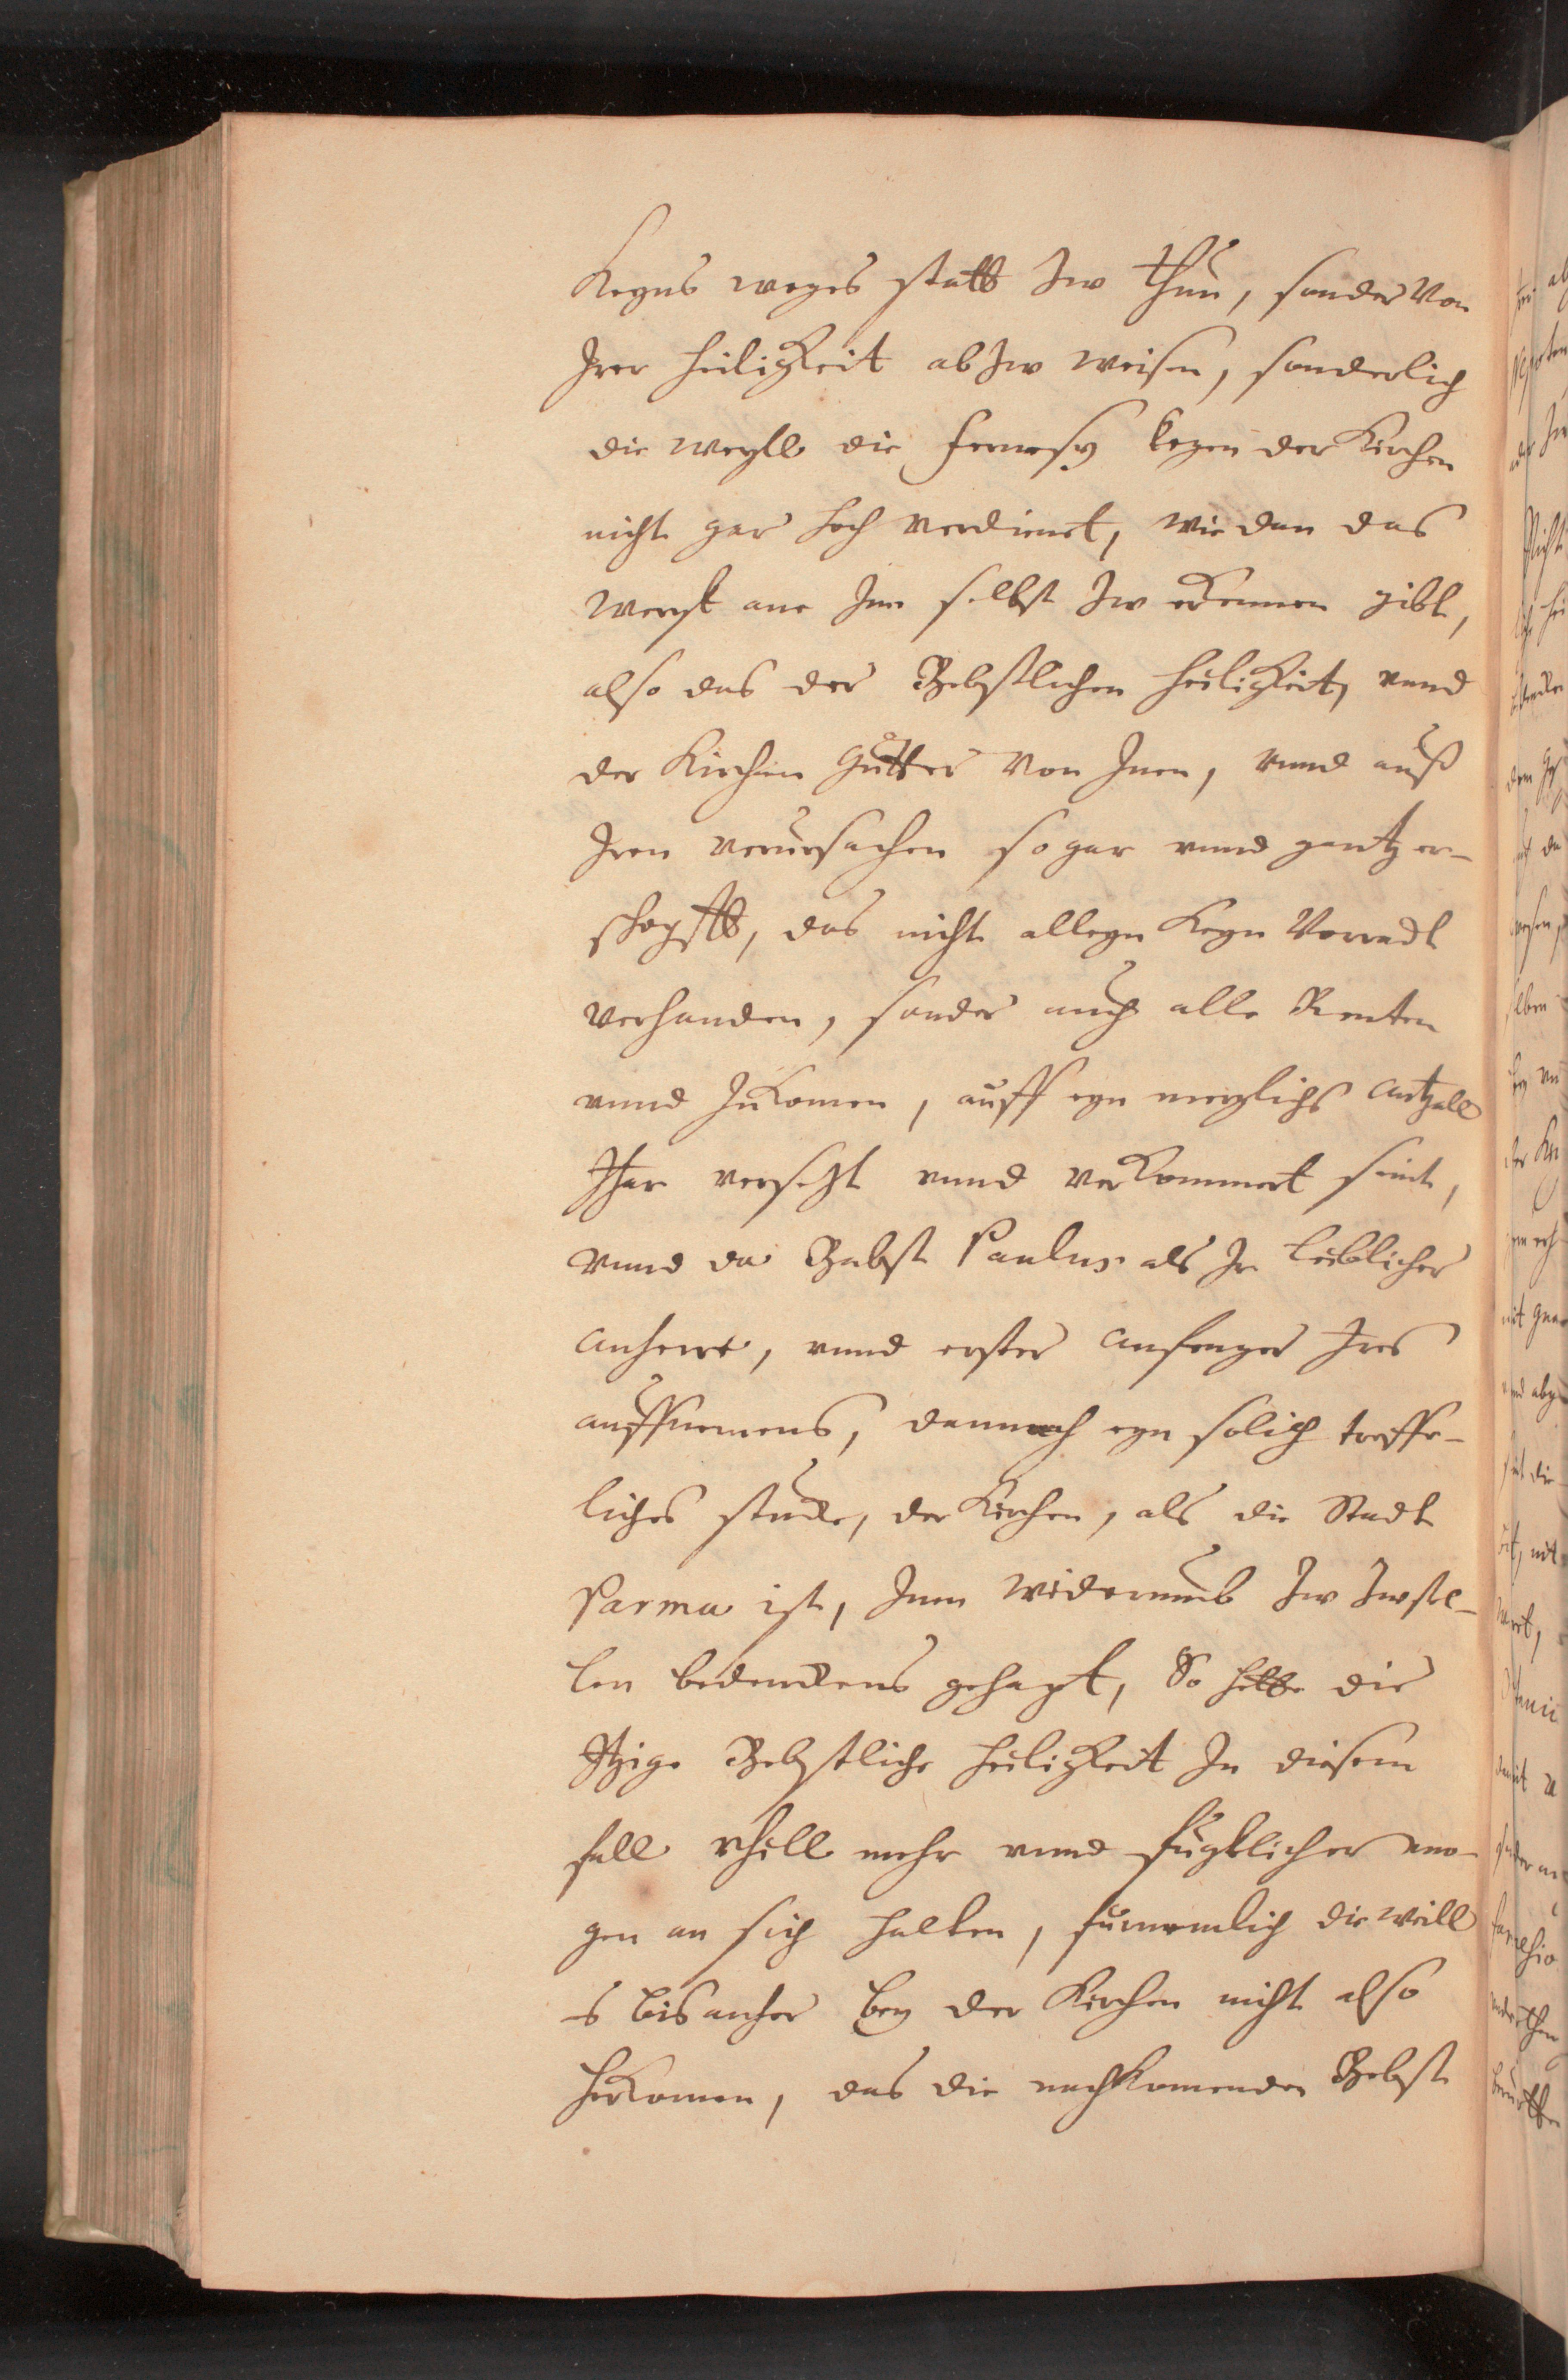 Keyns weges statt Zw thun, sonder Von
Irer heiligkeit ab Zw weisen, sonderlich
die weyll die fernesy kegen der Kirchen
nicht gar hoch verdienet, wie dan das
werck ane Im selbst Zw erkennen gibt,
also das der Bebstlichen heiligkeit, vnnd
der Kirchen gutter Von Inen, vnnd auß
Iren verursachen so gar vnnd gantz er-
schopfft, das nicht alleyn Keyn Vorradt
verhanden, sonder auch alle Renten
vnnd Zukomen, auff eyn merglichs antzall
Jhar versetzt vnnd verkommert seint,
vnnd da Babst Paulus als Ir leiblicher
anherre, vnnd erster anfenger Ires
auffnemens, dannach eyn solich treffe-
liches stucke, der Kirchen, als die Stadt
Parma ist, Inen widerumb Zw Zwstel-
len bedenckens gehapt, So hette die
Itzige Bebstliche heiligkeit In diesem
fall vhill mehr vnnd fugklicher mo-
gen an sich halten, furnemlich die weill
es bis anher bey der Kirchen nicht also
herkomen, das die nachkomenden Bebst